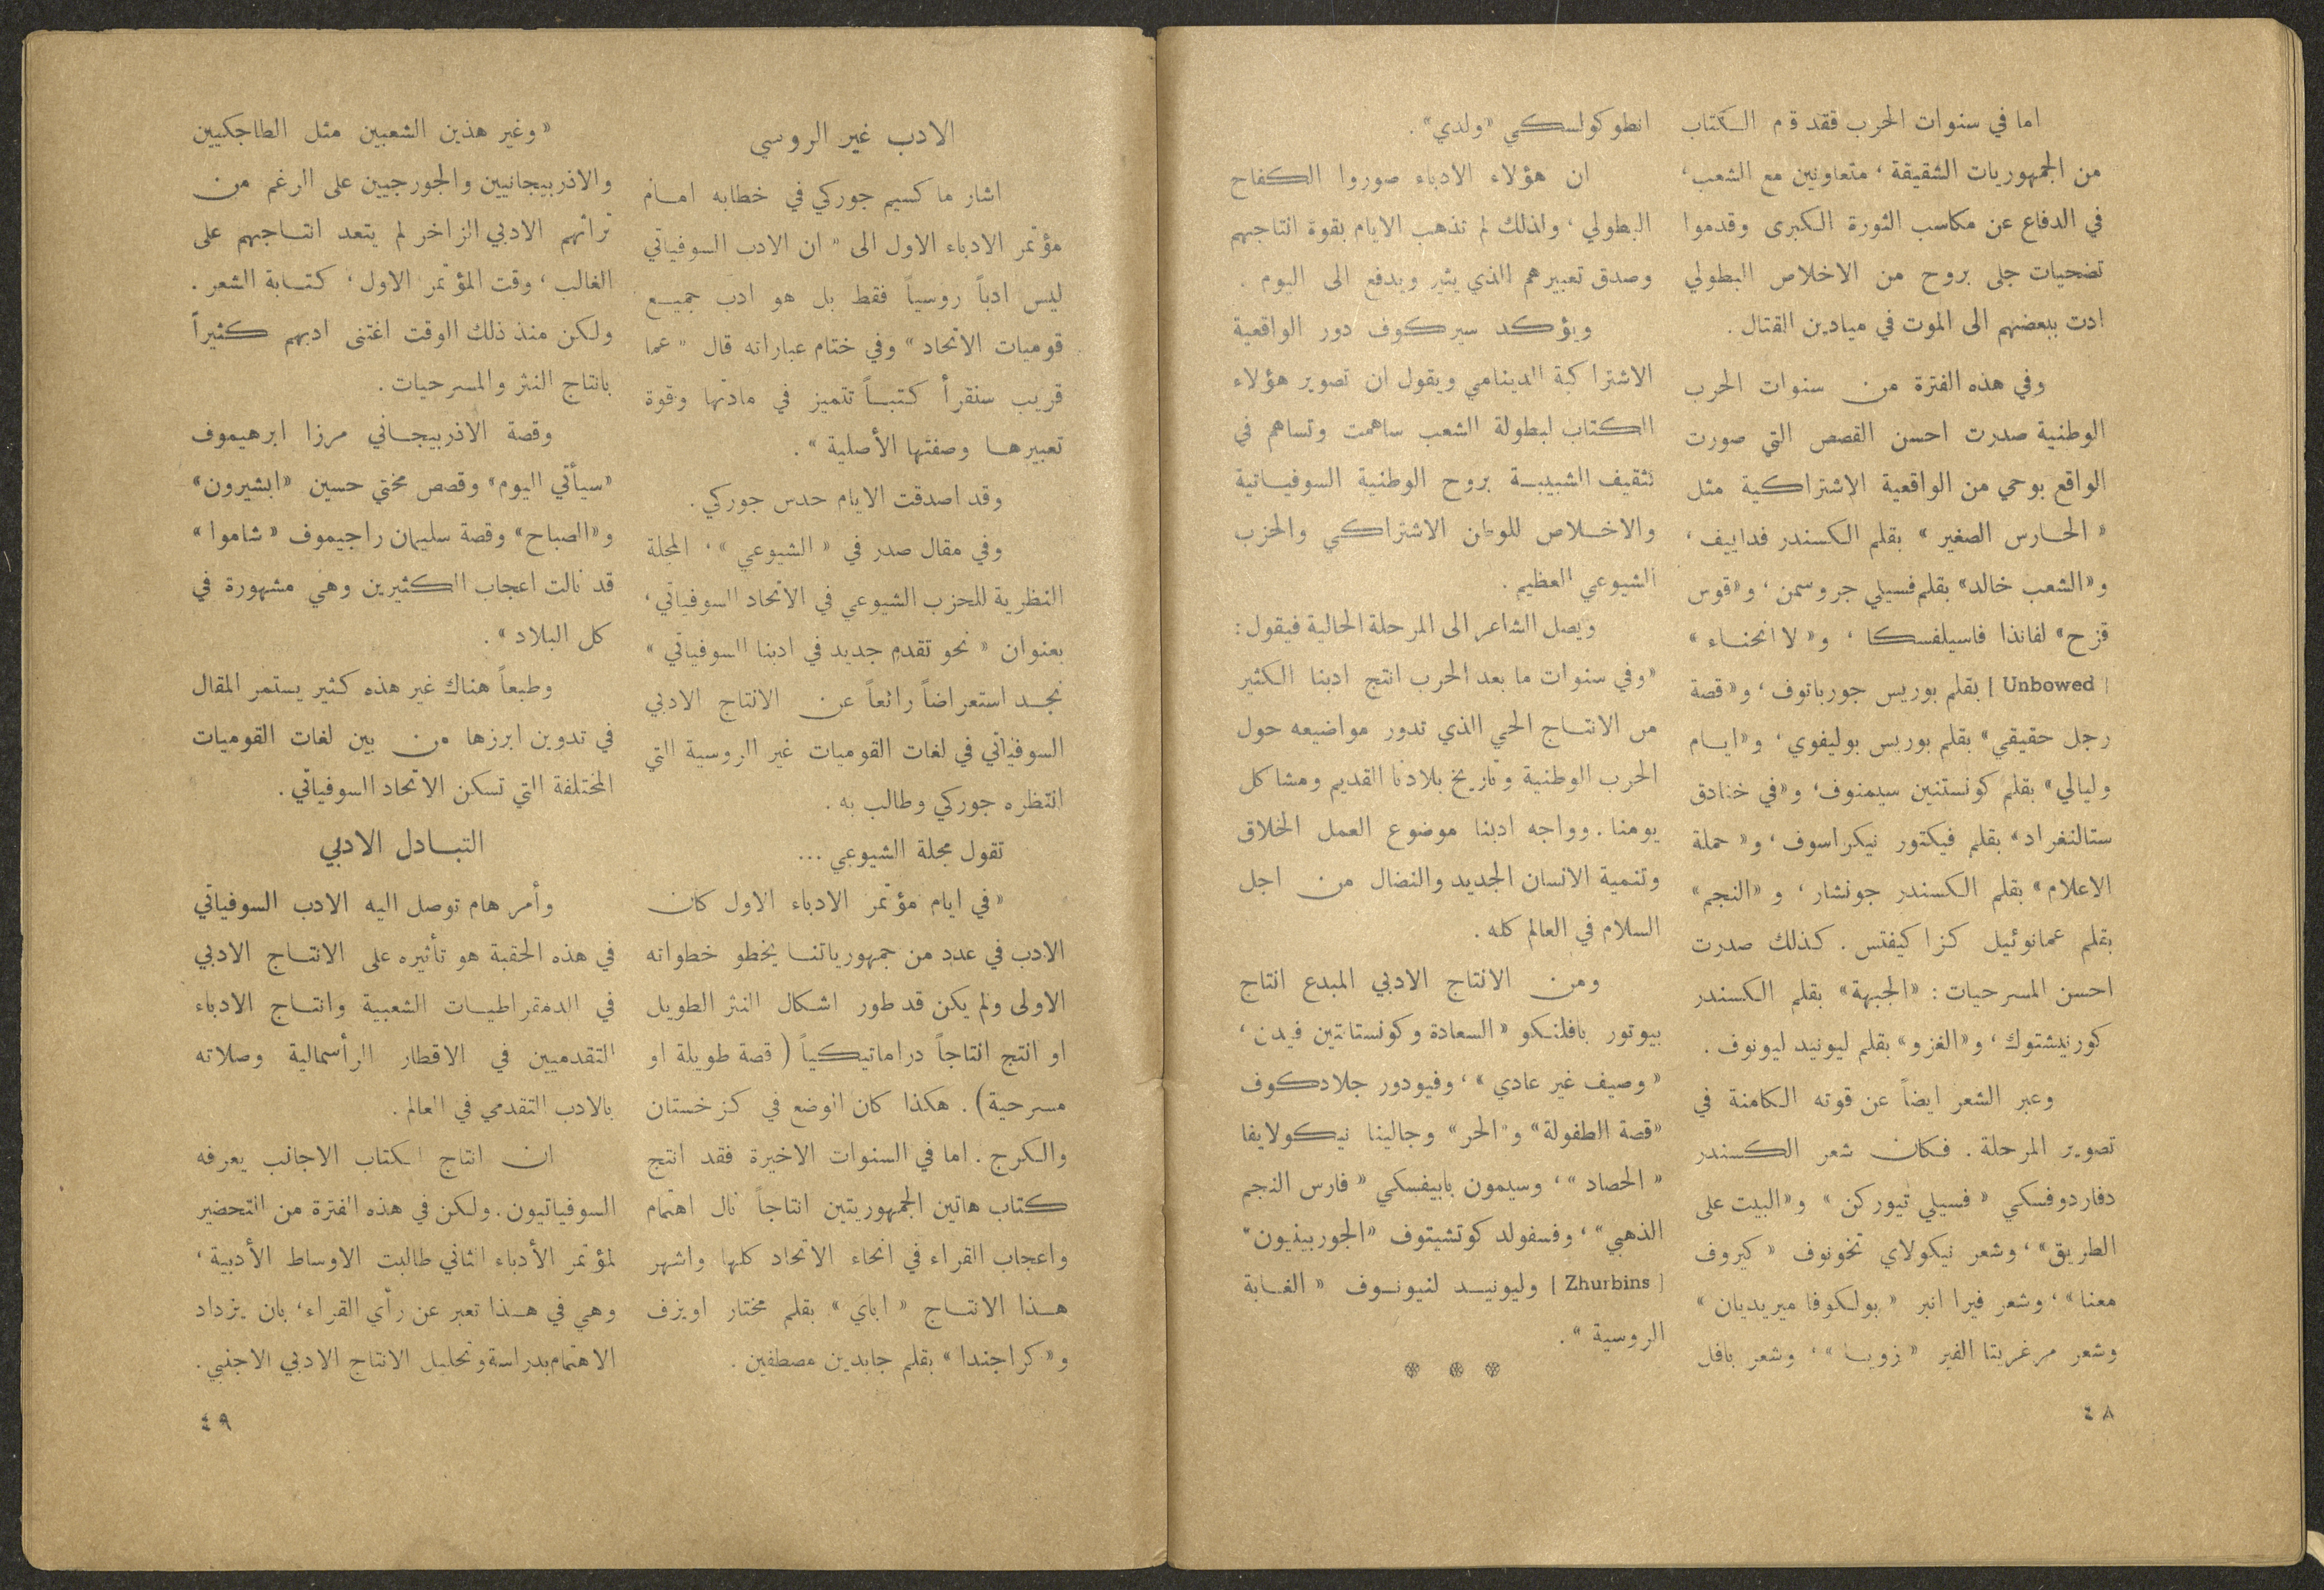 اما في سنوات الحرب فقد قام الكتاب
من الجمهوريات الشقيقة ، متعاونين مع الشعب،
في الدفاع عن مكاسب الثورة الكبرى وقدموا
تضحيات جلى بروح من الاخلاص البطولي
ادت ببعضهم الى الموت في ميادين القتال .
وفي هذه الفترة من سنوات الحرب
الوطنية صدرت احسن القصص التي صورت
الواقع بوحي من الواقعية الاشتراكية مثل
« الحارس الصغير » بقلم الكسندر فداييف ،
و«الشعب خالد» بقلم فسيلي جروسمن ، و«قوس
قزح» لفاندا فاسيلفسكا ، و« لا انحناء »
[ Unbowed ] بقلم بوريس جورباتوف ، و«قصة
رجل حقيقي» بقلم بوريس بوليفوي ، و«ايام
وليالي» بقلم كونستنين سيمنوف، و«في خنادق
ستالنغراد» بقلم فيكتور نيكراسوف ، و« حملة
الاعلام» بقلم الكسندر جونشار ، و «النجم»
بقلم عمانوئيل كزاكيفتس . كذلك صدرت
احسن المسرحيات : «الجبهة» بقلم الكسندر
كورنيشتوك ، و«الغزو» بقلم ليونيد ليونوف .
وعبر الشعر ايضاً عن قوته الكامنة في
تصوير المرحلة . فكان شعر الكسندر
دفاردوفسكي « فسيلي تيوركن » و«البيت على
الطريق» ، وشعر نيكولاي تخونوف « كيروف
معنا» ، وشعر فيرا انبر « بولكوفا ميريديان »
وشعر مرغريتا الفير « زويا » ، وشعر بافل
٤٨
انطوكولسكي «ولدي» .
ان هؤلاء الادباء صوروا الكفاح
البطولي ، ولذلك لم تذهب الايام بقوة انتاجهم
وصدق تعبيرهم الذي يثير ويدفع الى اليوم .
ويؤكد سيركوف دور الواقعية
الاشتراكية الدينامي ويقول ان تصوير هؤلاء
الكتاب لبطولة الشعب ساهمت وتساهم في
تثقيف الشبيبة بروح الوطنية السوفياتية
والاخلاص للوطن الاشتراكي والحزب
الشيوعي العظيم .
ويصل الشاعر الى المرحلة الحالية فيقول :
«وفي سنوات ما بعد الحرب انتج ادبنا الكثير
من الانتاج الحي الذي تدور مواضيعه حول
الحرب الوطنية وتاريخ بلادنا القديم ومشاكل
يومنا . وواجه ادبنا موضوع العمل الخلاق
وتنمية الانسان الجديد والنضال من اجل
السلام في العالم كله .
ومن الانتاج الادبي المبدع انتاج
بيوتور بافلنكو «السعادة وكونستانتين فيدن ،
« وصيف غير عادي » ، وفيودور جلادكوف
«قصة الطفولة» و«الحر» وجالينا نيكولايفا
« الحصاد » ، وسيمون بابيفسكي « فارس النجم
الذهبي» ، وفسفولد كوتشيتوف «الجوربينيون»
[ Zhurbins ] وليونيد لنيونوف « الغابة
الروسية » .
❊ ❊ ❊
الادب غير الروسي
اشار ماكسيم جوركي في خطابه امام
مؤتمر الادباء الاول الى « ان الادب السوفياتي
ليس ادباً روسياً فقط بل هو ادب جميع
قوميات الاتحاد » وفي ختام عباراته قال « عما
قريب سنقرأ كتباً تتميز في مادتها وقوة
تعبيرها وصفتها الأصلية » .
وقد اصدقت الايام حدس جوركي .
وفي مقال صدر في « الشيوعي » ، المجلة
النظرية للحزب الشيوعي في الاتحاد السوفياتي ،
بعنوان « نحو تقدم جديد في ادبنا السوفياتي »
نجد استعراضاً رائعاً عن الانتاج الادبي
السوفياتي في لغات القوميات غير الروسية التي
انتظره جوركي وطالب به .
تقول مجلة الشيوعي ...
« في ايام مؤتمر الادباء الاول كان
الادب في عدد من جمهورياتنا يخطو خطواته
الاولى ولم يكن قد طور اشكال النثر الطويل
او انتج انتاجاً دراماتيكياً ( قصة طويلة او
مسرحية ) . هكذا كان الوضع في كزخستان
والكرج . اما في السنوات الاخيرة فقد انتج
كتاب هاتين الجمهوريتين انتاجاً نال اهتمام
واعجاب القراء في انحاء الاتحاد كلها واشهر
هذا الانتاج « اباي » بقلم مختار اويزف
و« كراجندا » بقلم جابدين مصطفين .
« وغير هذين الشعبين مثل الطاجكيين
والاذربيجانيين والجورجيين على الرغم من
تراثهم الادبي الزاخر لم يتعد انتاجهم على
الغالب ، وقت المؤتمر الاول ، كتابة الشعر .
ولكن منذ ذلك الوقت اغتنى ادبهم كثيراً
بانتاج النثر والمسرحيات .
وقصة الاذربيجاني مرزا ابرهيموف
«سيأتي اليوم» وقصص مختي حسين «ابشيرون»
و«الصباح» وقصة سليمان راجيموف « شاموا »
قد نالت اعجاب الكثيرين وهي مشهورة في
كل البلاد » .
وطبعاً هناك غير هذه كثير يستمر المقال
في تدوين ابرزها من بين لغات القوميات
المختلفة التي تسكن الاتحاد السوفياتي .
التبادل الادبي
وأمر هام توصل اليه الادب السوفياتي
في هذه الحقبة هو تأثيره على الانتاج الادبي
في الدمقراطيات الشعبية وانتاج الادباء
التقدميين في الاقطار الرأسمالية وصلاته
بالادب التقدمي في العالم .
ان انتاج الكتاب الاجانب يعرفه
السوفياتيون . ولكن في هذه الفترة من التحضير
لمؤتمر الأدباء الثاني طالبت الاوساط الأدبية ،
وهي في هذا تعبر عن رأي القراء ، بان يزداد
الاهتمام بدراسة وتحليل الانتاج الادبي الاجنبي .
٤٩